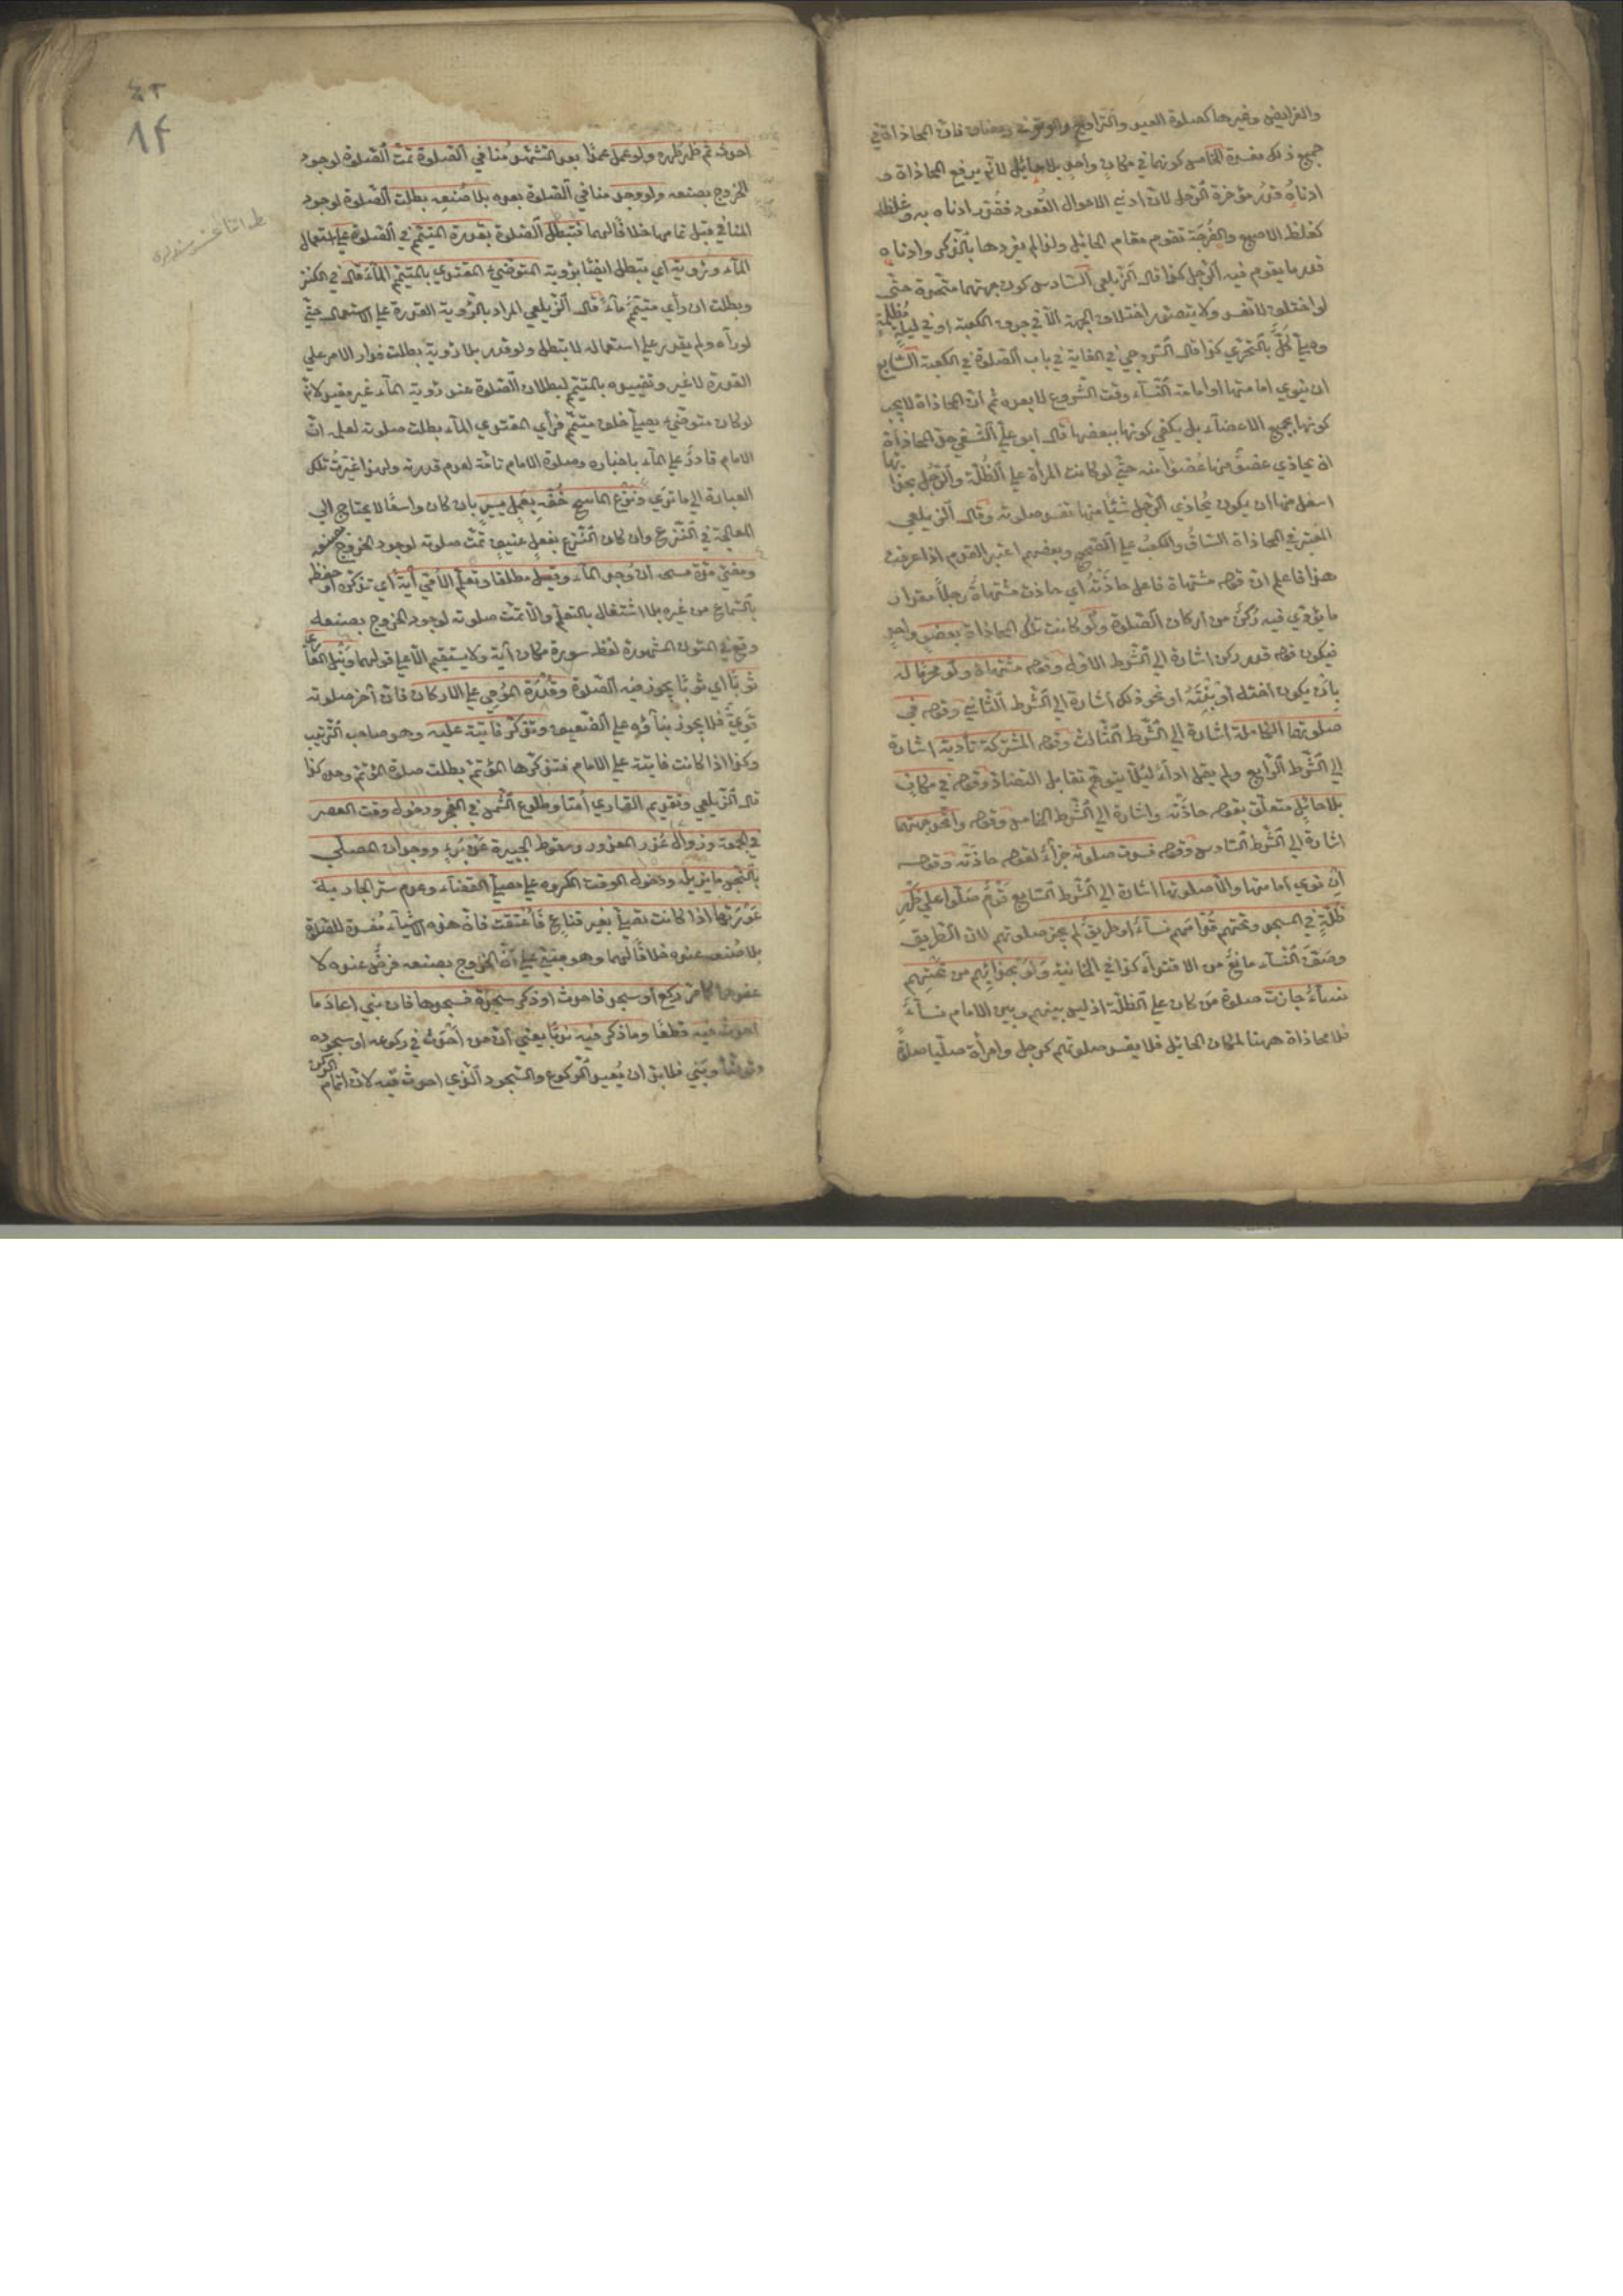 والفرايض وغيرها كصلوة العيد والتراويح والوتر في رمضان فان المحاذاة في
جميع ذلك مفسدة الخامس كونهما في مكان واحد بلا حائل لانه يرفع المحاذاة و
ادناه قدر مؤخرة الرحل لان ادنى الاحوال القعود فقدر ادناه به وغلظه
كغلظ الاصبع والفرجة تقوم مقام الحائل ولذا لم يفردها بالذكر وادناه
قدر ما يقوم فيه الرجل كذا قال الزيلعي السادس كون جهتهما متحدة حتى
لو اختلف لا تفسد ولا يتصور اختلاف الجهة الا في جوف الكعبة او في ليلة مظلمة
وصلى كل بالتحري كذا قال السروجي في الغاية في باب الصلوة في الكعبة السابع
ان ينوي امامتها او امامة النساء وقت الشروع لا بعده ثم ان المحاذاة لا يجب
كونها بجميع الاعضاء بل يكفي كونها ببعضها قال ابو علي النسفي حق المحاذاة
ان يحاذي عضو منها عضوا منه حتى لو كانت المرأة على الظلة والرجل بحذائها
اسفل منها ان يكون يحاذي الرجل شيئا منها تفسد صلوته وقال الزيلعي
المعتبر في المحاذاة الساق والكعب على الصحيح وبعضهم اعتبر القدم اذا عرفت
هذا فاعلم ان قوله مشتهاة فاعل حاذته اي حاذت مشتهاة رجلا مقدار
ما يؤدي فيه ركن من اركان الصلوة ولو كانت تلك المحاذاة بعضو واحد
فيكون قوله قدر ركن اشارة الى الشرط الاول وقوله مشتهاة ولو محرما له
بان يكون اخته او بنته او نحو ذلك اشارة الى الشرط الثاني وقوله في
صلوتهما الكاملة اشارة الى الشرط الثالث وقوله المشتركة تأدية اشارة
الى الشرط الرابع ولم يقل اداء لئلا يتوهم تقابل القضاء وقوله في مكان
بلا حائل متعلق بقوله حاذته واشارة الى الشرط الخامس وقوله واتحد جهتهما
اشارة الى الشرط السادس وقوله فسدت صلوته جزاء لقوله حاذته وقوله
ان نوى امامتها والا صلوتها اشارة الى الشرط السابع قوم صلوا على ظهر
ظلة في المسجد وتحتهم قدامهم نساء او طريق لم يجز صلوتهم لان الطريق
وصف النساء مانع من الاقتداء كذا في الخانية ولو بحذائهم من تحتهم
نساء جازت صلوة من كان على الظلة اذ ليس بينهم وبين الامام نساء
فلا محاذاة ههنا لمكان الحائل فلا يفسد صلوتهم كرجل وامرأة صليا صلوة
٤٢
٨٤
احدث ثم ظهر طهره ولو عمل عمدا بعد التشهد منافي الصلوة تمت الصلوة لوجود
الخروج بصنعه ولو وجد منافي الصلوة بعده بلا صنعه بطلت الصلوة لوجود
المنافي قبل تمامها خلافا لهما فتبطل الصلوة بقدرة المتيمم في الصلوة على استعمال
الماء ورؤيته اي يبطل ايضا برؤية المتوضئ المقتدي بالمتيمم الماء قال في الكنز
وبطلت ان رأى متيمم ماء قال الزيلعي المراد بالرؤية القدرة على الاستعمال حتى
لو رآه ولم يقدر على استعماله لا تبطل ولو قدر بلا رؤية بطلت فدار الامر على
القدرة لا غير وتقييده بالمتيمم لبطلان الصلوة عند رؤية الماء غير مفيد لانه
لو كان متوضئ يصلي خلف متيمم فرأى المقتدي الماء بطلت صلوته لعلمه ان
الامام قادر على الماء باخباره وصلوة الامام تامة لعدم قدرته ولهذا غيرت تلك
العبارة الى ما ترى ونزع الماسح خفه بعمل يسير بان كان واسعا لا يحتاج الى
المعالجة في النزع وان كان النزع بفعل عنيف تمت صلوته لوجود الخروج بصنعه
ومضي مدة مسحه ان وجد الماء وقيل مطلقا وتعلم الامي آية اي تذكره او حفظه
بالسماع من غيره بلا اشتغال بالتعلم والا تمت صلوته لوجود الخروج بصنعه
وقع في المتون المشهورة لفظ سورة مكان آية ولا يستقيم الا على قولهما ونيل العاري
ثوبا اي ثوبا يجوز فيه الصلوة وقدرة المومي على الاركان فان آخر صلوته
قوي فلا يجوز بناؤه على الضعيف وتذكر فائتة عليه وهو صاحب الترتيب
وكذا اذا كانت فائتة على الامام فتذكرها المؤتم بطلت صلوة المؤتم وحده كذا
قال الزيلعي وتقديم القاري اميا وطلوع الشمس في الفجر ودخول وقت العصر
في الجمعة وزوال عذر المعذور وسقوط الجبيرة عن برء ووجدان المصلي
بالنجس ما يزيله ودخول الوقت المكروه على مصلي القضاء وعدم ستر الجارية
عورتها اذا كانت تصلي بغير قناع فاعتقت فان هذه الاشياء مفسدة للصلوة
بلا صنعه عنده خلافا لهما وهو مبني على ان الخروج بصنعه فرض عنده لا
عندهما كما مر ركع او سجد فاحدث او ذكر سجدة فسجدها فان بنى اعاد ما
احدث فيه قطعا وما ذكر فيه ندبا يعني ان من احدث في ركوعه او سجوده
وتوضأ وبنى فلا بد ان يعيد الركوع والسجود الذي احدث فيه لان اتمام الركن